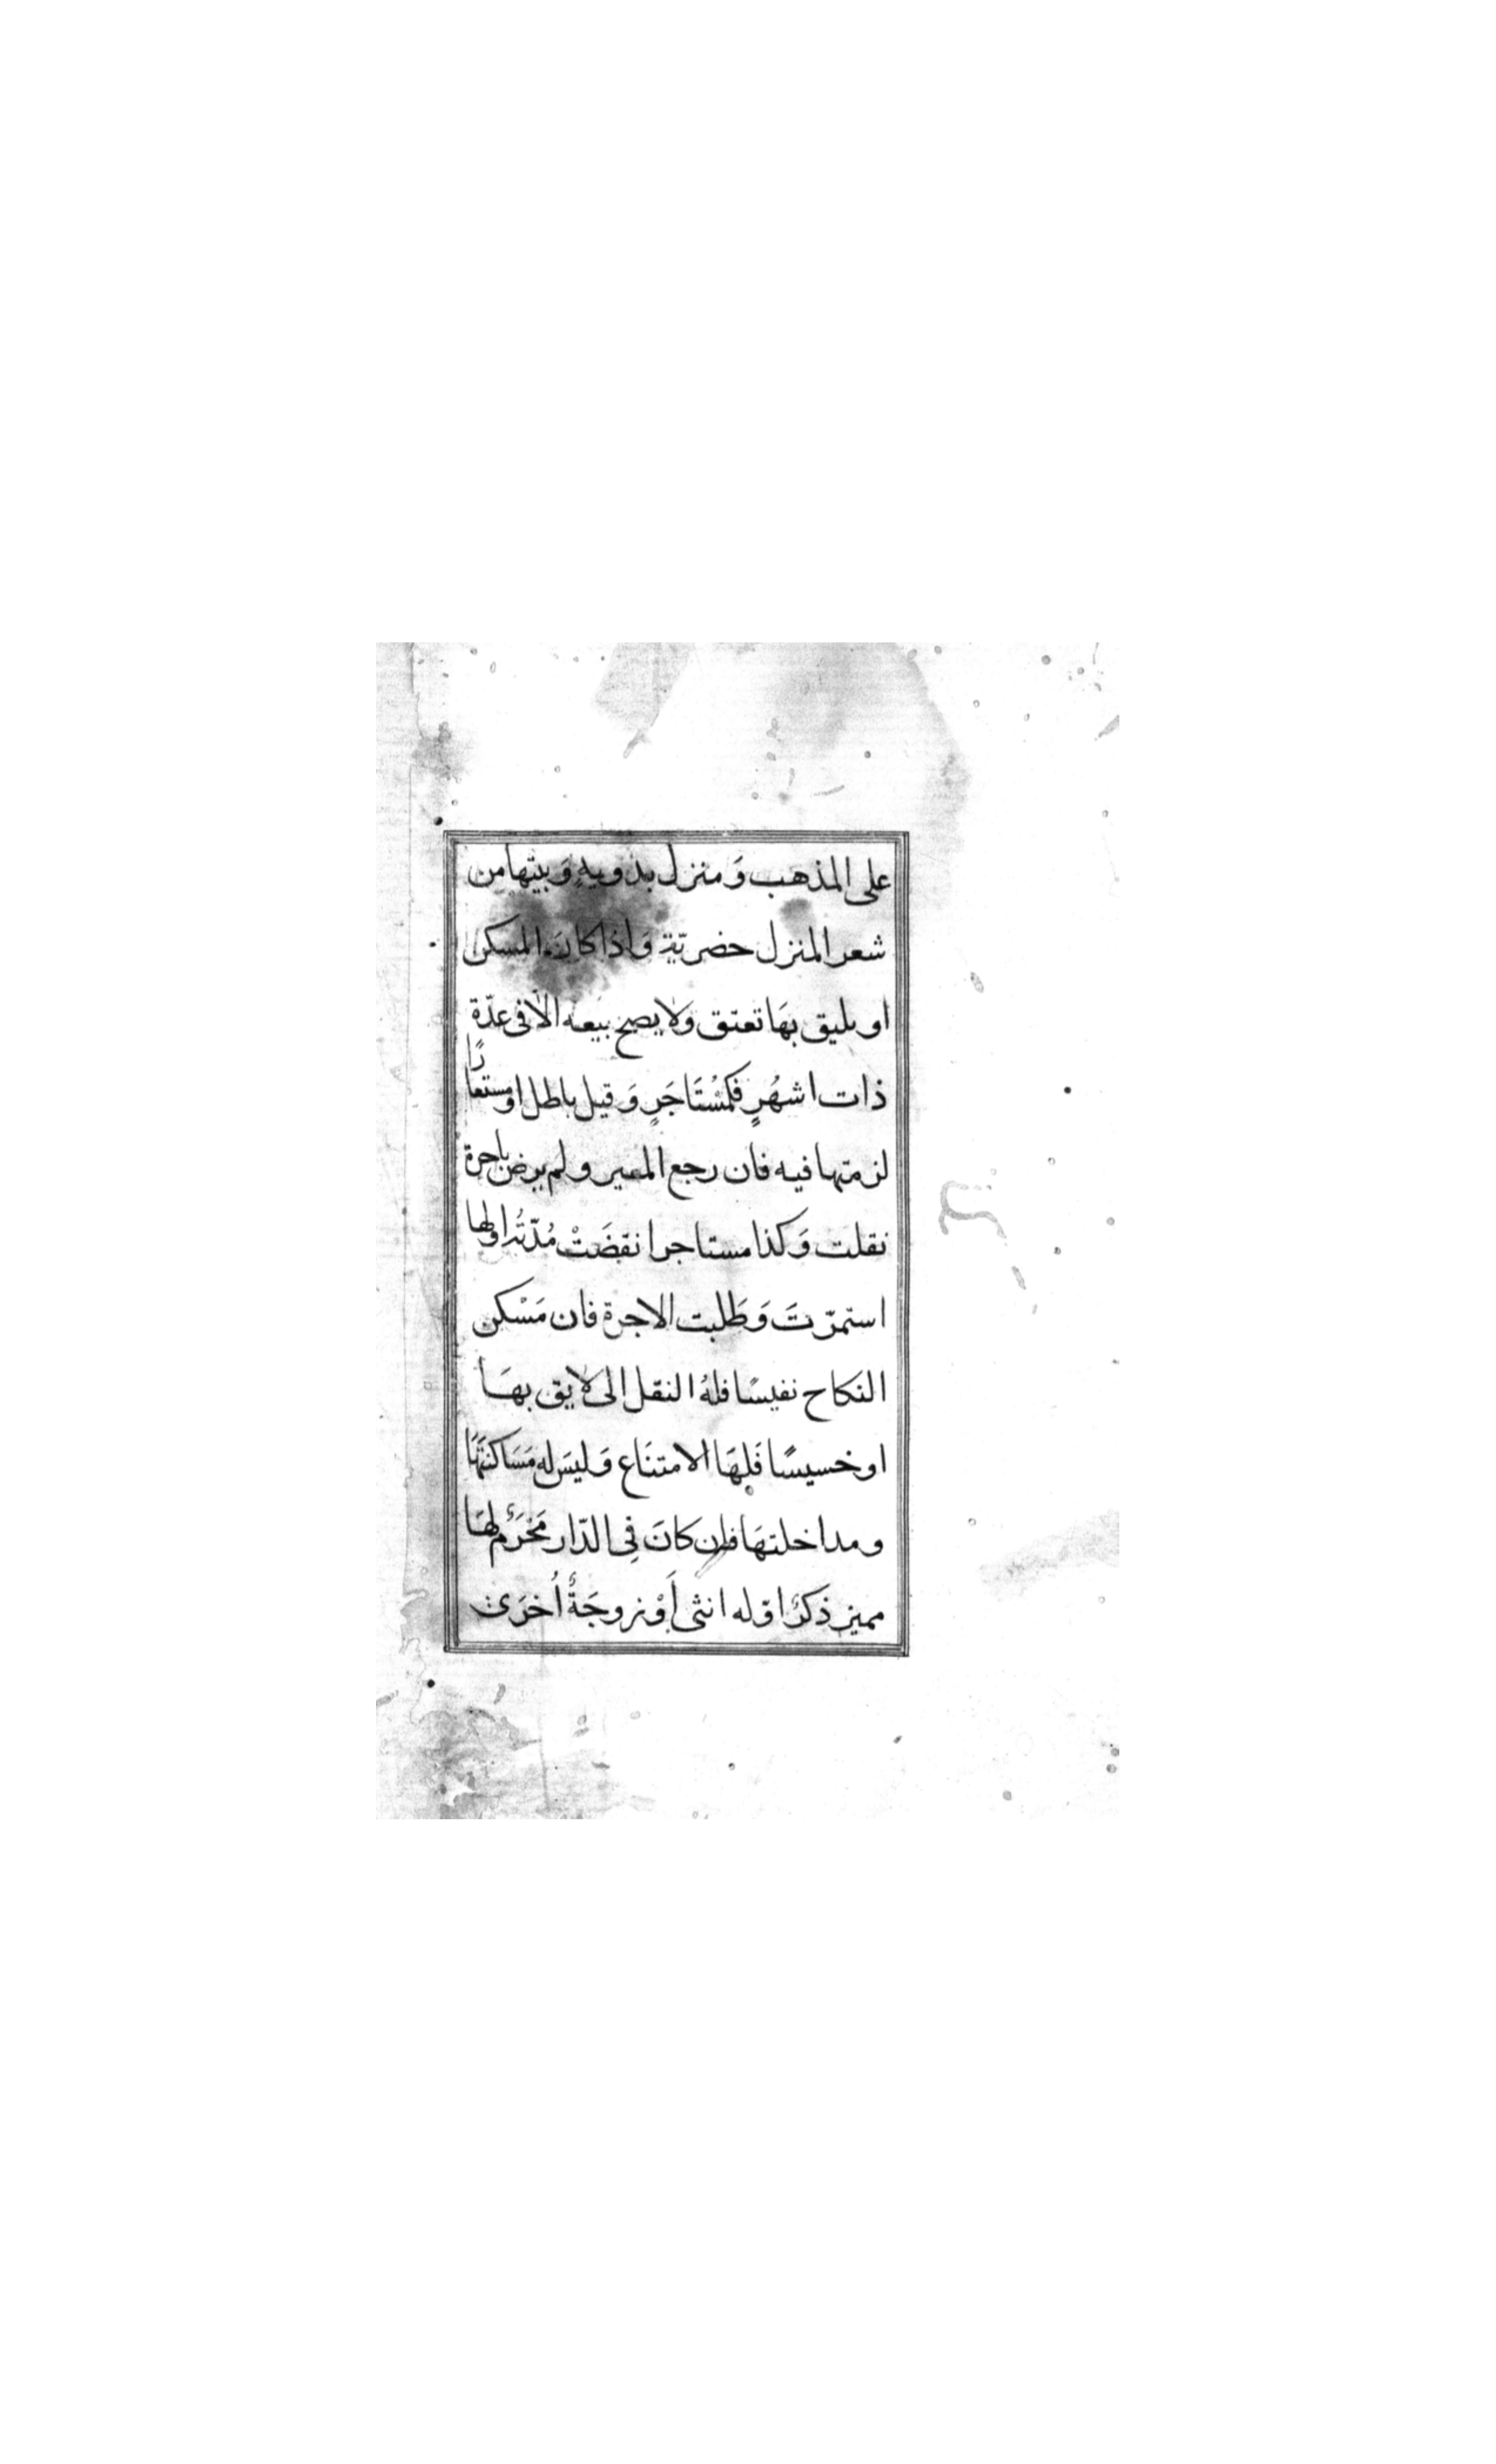 على المذهب وَمنزل بدويةٍ وَبيتها من
شعر المنزل حضريّة وَاذا كانَ المسكن
او يليق بهَا تعتق وَلا يصح بيعه الا فى عدّة
ذات اشهُرٍ فكمُسْتَاجَرٍ وَقيل باطل او مستعارًا
لزمتها فيه فان رجع المعير ولم يرض باجرة
نقلت وَكذا مستاجر انقضَتْ مُدّتُه او لها
استمرّتَ وَطَلبت الاجرة فان مَسْكن
النكاح نفيسًا فلهُ النقل الى لايق بهَا
او خسيسًا فَلِهَا الامتنَاع وَليسَ له مَسَاكنتَهَا
ومداخلتهَا فان كانَ فِى الدّار مَحْرَمٌ لهَا
مميز ذكرٌ اوْ له انثى أَوْ زوجَةٌ اُخرَى